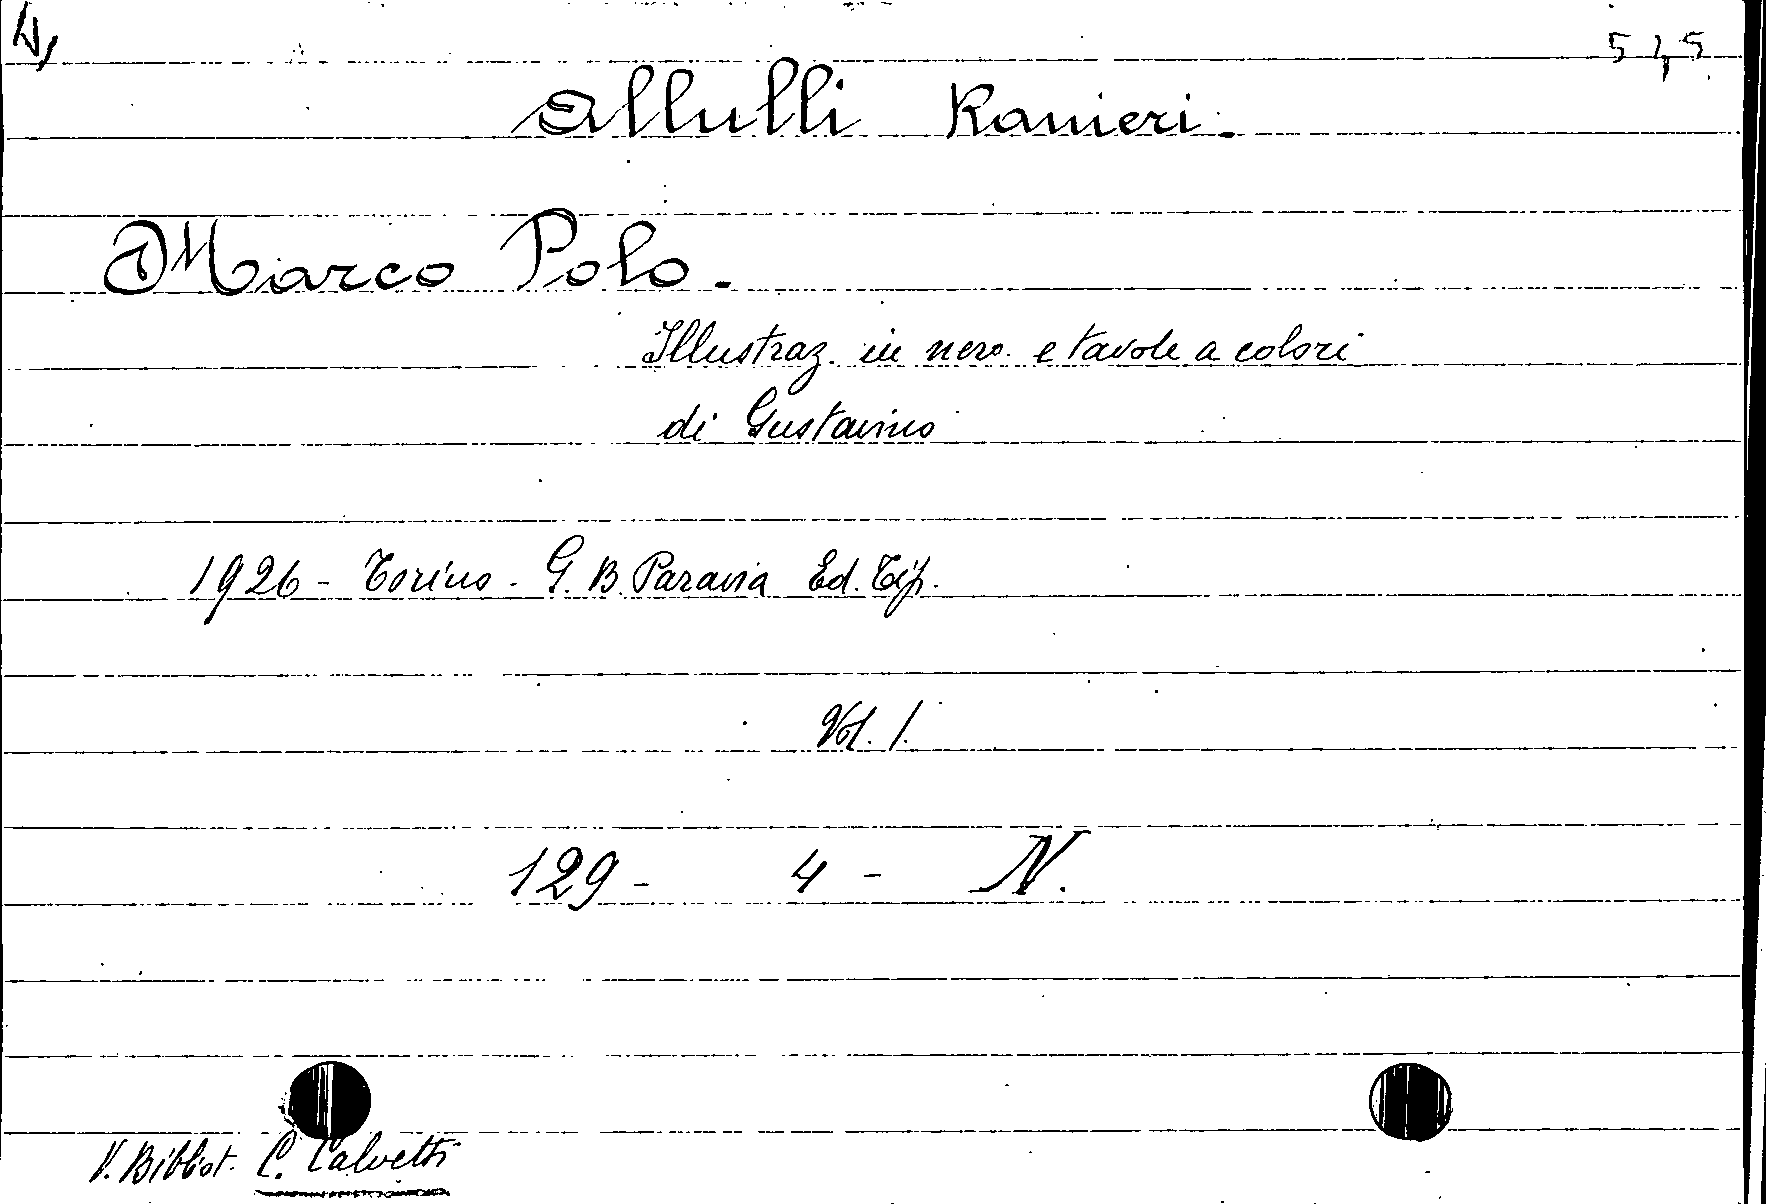 545
Allulli Ranieri.
Marco Polo.
Illustraz. in nero e tavole a colori
di Gustavino
1926 - Torino - G. B. Paravia Ed. Tip.
Vol. 1.
129 - 4 - N.
V. Bibliot. C. Calvetti